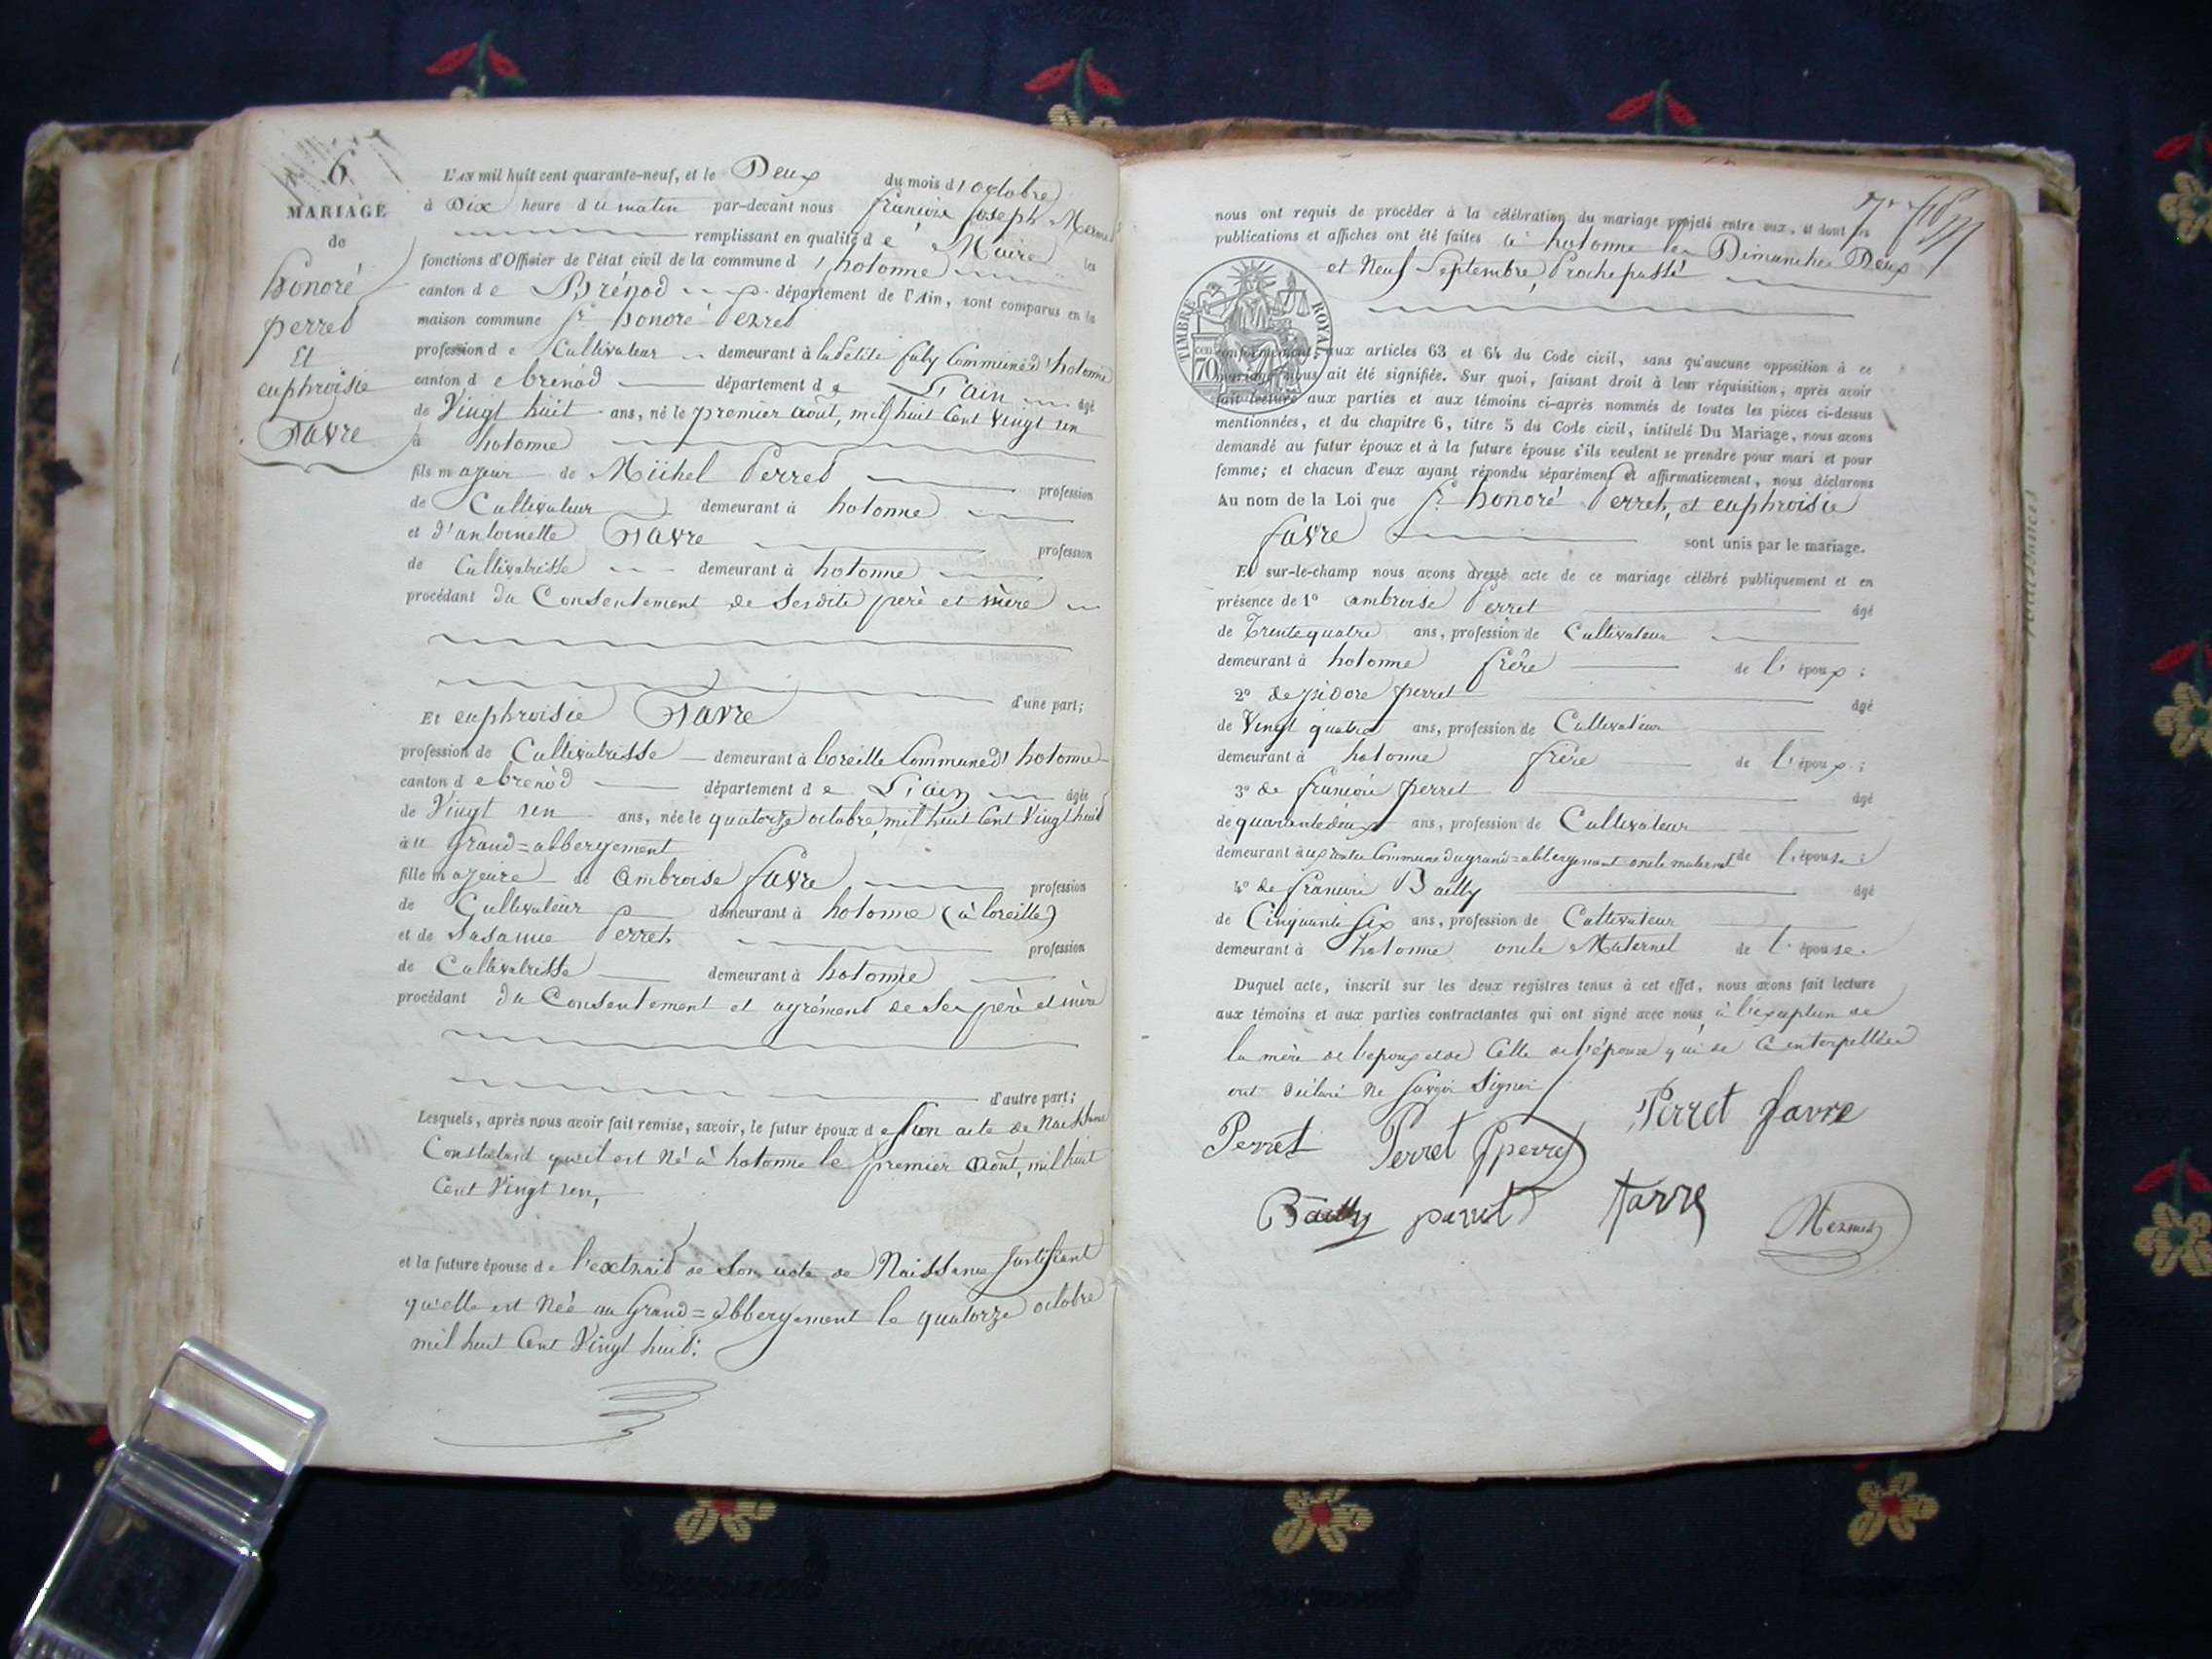 6
MARIAGE
de
honoré
perret
Et
euphroisie
Favre
L'AN mil huit cent quarante-neuf, et le Deux du mois d'octobre
à Dix heure du matin par-devant nous françois Joseph
remplissant en qualité de Maire les
fonctions d'Officier de l'état civil de la commune d'hotonne
canton de Brénod département de l'Ain, sont comparus en la
maison commune Sr honoré Perret
profession de Cultivateur demeurant à la Petite Commune d'hotonne
canton de brenod département de L'ain âgé
de Vingt huit ans, né le premier août, mil huit Cent Vingt un
à hotonne
fils majeur de Michel Perret profession
de Cultivateur demeurant à hotonne
et d'antoinette Favre profession
de Cultivatrisse demeurant à hotonne
procédant du Consentement de Sesdits peré et mère
d'une part;
Et euphroisie Favre
profession de Cultivatrisse demeurant à loreille Commune d'hotonne
canton de brenod département de L'ain âgée
de Vingt un ans, née le quatorze octobre, mil huit Cent Vingt huit
au Grand=abbergement
fille majeure de Ambroise favre profession
de Cultivateur demeurant à hotonne (à loreille)
et de Susanne Perret profession
de Cultivatrisse demeurant à hotonne
procédant du Consentement et agrément de Ses peré et mère
d'autre part;
Lesquels, après nous avoir fait remise, savoir, le futur époux de Son acte de Naissance
Constatant qu'il est Né à hotonne le premier Août, mil huit
Cent Vingt un,
et la future épouse de l'extrait de Son acte de Naissance Justifiant
qu'elle est Née au Grand=abbergement le quatorze octobre
mil huit Cent Vingt huit.
nous ont requis de procéder à la célébration du mariage projeté entre eux, et dont les
publications et affiches ont été faites à hotonne les Dimanches Deux
et Neuf Septembre, Proche passé
TIMBRE ROYAL
70
conformément aux articles 63 et 64 du Code civil, sans qu'aucune opposition à ce
mariage nous ait été signifiée. Sur quoi, faisant droit à leur réquisition, après avoir
fait lecture aux parties et aux témoins ci-après nommés de toutes les pièces ci-dessus
mentionnées, et du chapitre 6, titre 5 du Code civil, intitulé Du Mariage, nous avons
demandé au futur époux et à la future épouse s'ils veulent se prendre pour mari et pour
femme; et chacun d'eux ayant répondu séparément et affirmativement, nous déclarons
Au nom de la Loi que Sr honoré Perret, et euphroisie
favre sont unis par le mariage.
Et sur-le-champ nous avons dressé acte de ce mariage célébré publiquement et en
présence de 1º ambroise Perret âgé
de Trente quatre ans, profession de Cultivateur
demeurant à hotonne frère de l'époux;
2º de isidore perret âgé
de Vingt quatre ans, profession de Cultivateur
demeurant à hotonne frère de l'époux;
3º de françois perret âgé
de quarante deux ans, profession de Cultivateur
demeurant Commune du grand=abbergement oncle maternel de l'épouse;
4º de françois Bailly âgé
de Cinquante Six ans, profession de Cultivateur
demeurant à hotonne oncle Maternel de l'épouse.
Duquel acte, inscrit sur les deux registres tenus à cet effet, nous avons fait lecture
aux témoins et aux parties contractantes qui ont signé avec nous, à l'exception de
la mère de l'epoux et de Celle de l'épouse qui de Ce interpellées
ont déclaré Ne Savoir Signer
Perret Perret Perret Favre
Bailly perret Favre